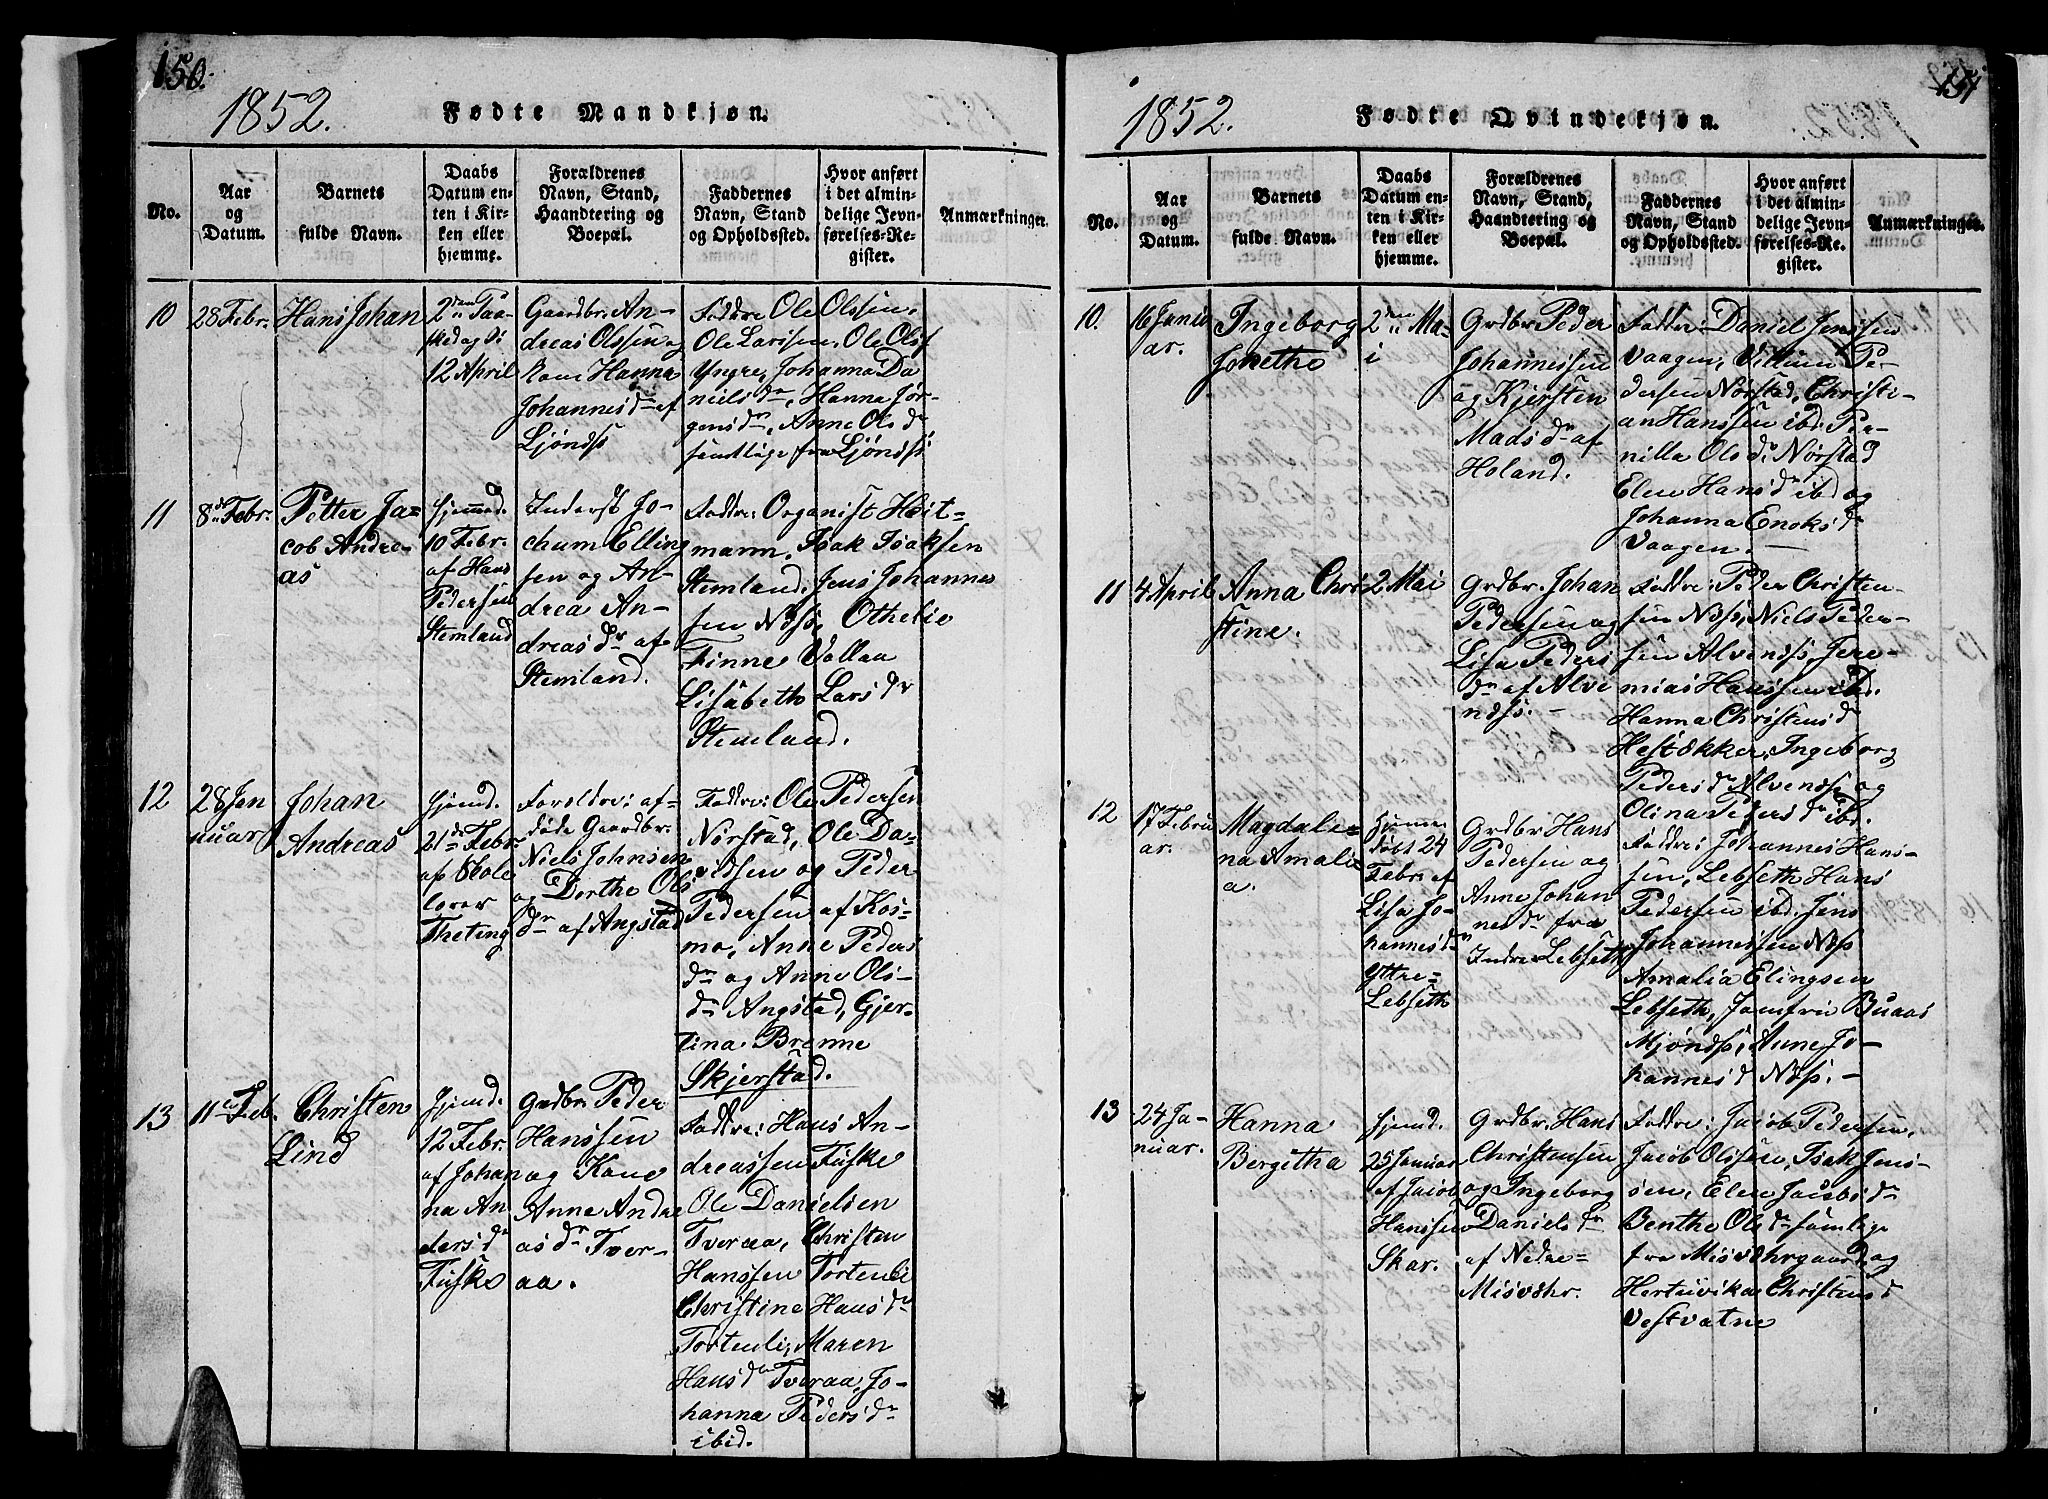 150.
1852.
Fødte Mandkjøn.
No.
Aar
og
Datum.
Barnets
fulde Navn.
Daabs
Datum en-
ten i Kir-
ken eller
hjemme.
Forældrenes
Navn, Stand,
Haandtering og
Boepæl.
Faddernes
Navn, Stand
og Opholdssted.
Hvor anført
i det almin-
delige Jevn-
førelses-Re-
gister.
Anmærkninger.
10
28 Febr.
Hans Johan
2den Paa-
skedag d:
12 April
Gaardbr: An-
dreas Olssen og
kone Hanna
Johannesdr af
Ljøndss
Faddre Ole Olssen,
Ole Larssen, Ole Olss
Yngre, Johanna Da
nielsdr, Hanna Jør-
gensdr, Anne Olsdr
samtlige fra Ljøndss
11
8de Febr.
Petter Ja-
cob Andre-
as
hjemmed.
10 Febr.
af Hans
Pedersen
Stemland
Inderst Jo-
chum Elling
sen og An-
drea An-
dreasdr af
Stemland.
Faddre: Organist Heit-
mann, Isak Isaksen
Stemland, Jens Johannes
sen Næss, Othelie
Finne Vollaa
Lisabeth Larsdr
Stemland.
12
28 Jan
nuar
Johan
Andreas
hjemd.
21de Febr.
af Skole
lærer
Theting
Foreldre: af-
døde Gaardbr.
Niels Johnsen
og Dorthe Ols
dr af Angstad
Faddre: Ole Pedersen
Nørstad, Ole Da-
vidsen og Peder
Pedersen af Kos-
mo, Anne Peders
dr og Anne Ols-
dr Angstad, Gjer-
tina Brenne
Skjerstad.
13
11te Feb.
Christen
Lind
hjemd.
12 Febr.
af Johan
na An
dersdr
Fuske
Grdbr. Peder
Hanssen
og Kone
Anne Andre
asdr Tver-
aa.
Faddre: Hans An-
dreassen Fuske
Ole Danielsen
Tveraa, Christen
Hanssen Tortenli
Christine Hansdr
Tortenli, Maren
Hansdr Tveraa, Jo-
hanna Pedersdr
ibid.
151
1852.
Fødte Qvindekjøn.
No.
Aar
og
Datum.
Barnets
fulde Navn.
Daabs
Datum en-
ten i Kir-
ken eller
hjemme.
Forældrenes
Navn, Stand,
Haandtering og
Boepæl.
Faddernes
Navn, Stand
og Opholdssted.
Hvor anført
i det almin-
delige Jevn-
førelses-Re-
gister.
Anmærkninger.
10.
16 Janu
ar.
Ingeborg
Jonetha
2den Ma-
i
Grdbr Peder
Johannessen
og Kjersten
Madsdr af
Holand.
Faddre: Daniel Jenssen
Vaagen, Villum Pe-
dersen Nørstad, Christi-
an Hanssen ibd: Per-
nilla Olsdr Nørstad
Elen Hansdr ibd og
Johanna Enoksdr
Vaagen.
11
4 April
Anna Chri
stine.
2 Mai
Grdbr. Johan
Pedersen og
Lisa Peders
dr af Alve
næss.
Faddre: Peder Christen-
sen Næss, Niels Peder-
sen Alvenæss, Jere-
mias Hanssen ibd.
Hanna Christensdr
Hestækker, Ingeborg
Pedersdr Alvenæss og
Olina Pedersdr ibd.
12
17 Febru
ar.
Magdale-
na Amalie
a.
hjemme
døbt 24
Febr. af
Lisa Jo-
hannesdr
Yttre-
Lebseth
Grdbr Hans
Pedersen og
Anne Johan
nesdr fra
Indre Lebseth
Faddre: Johannes Hans-
sen, Lebseth Hans
Pedersen ibd. Jens
Johannessen Næss
Amalia Elingsen
Lebseth, Jomfru Buaas
Mjøndss, Anne Jo-
hannesd Næss.
13
24 Ja-
nuar.
Hanna
Bergitha
hjemd.
25 Januar
af Jacob
Hanssen
Skar.
Grdbr. Hans
Christensen
og Ingeborg
Danielsdr
af Nedre-
Misvær.
Faddre: Jacob Pedersen,
Jacob Olssen, Isak Jens-
sen, Elen Jacobsdr
Benthe Olsdr samlige
fra Misværgaard, og
Hertuvika Christensd
Vestvatne